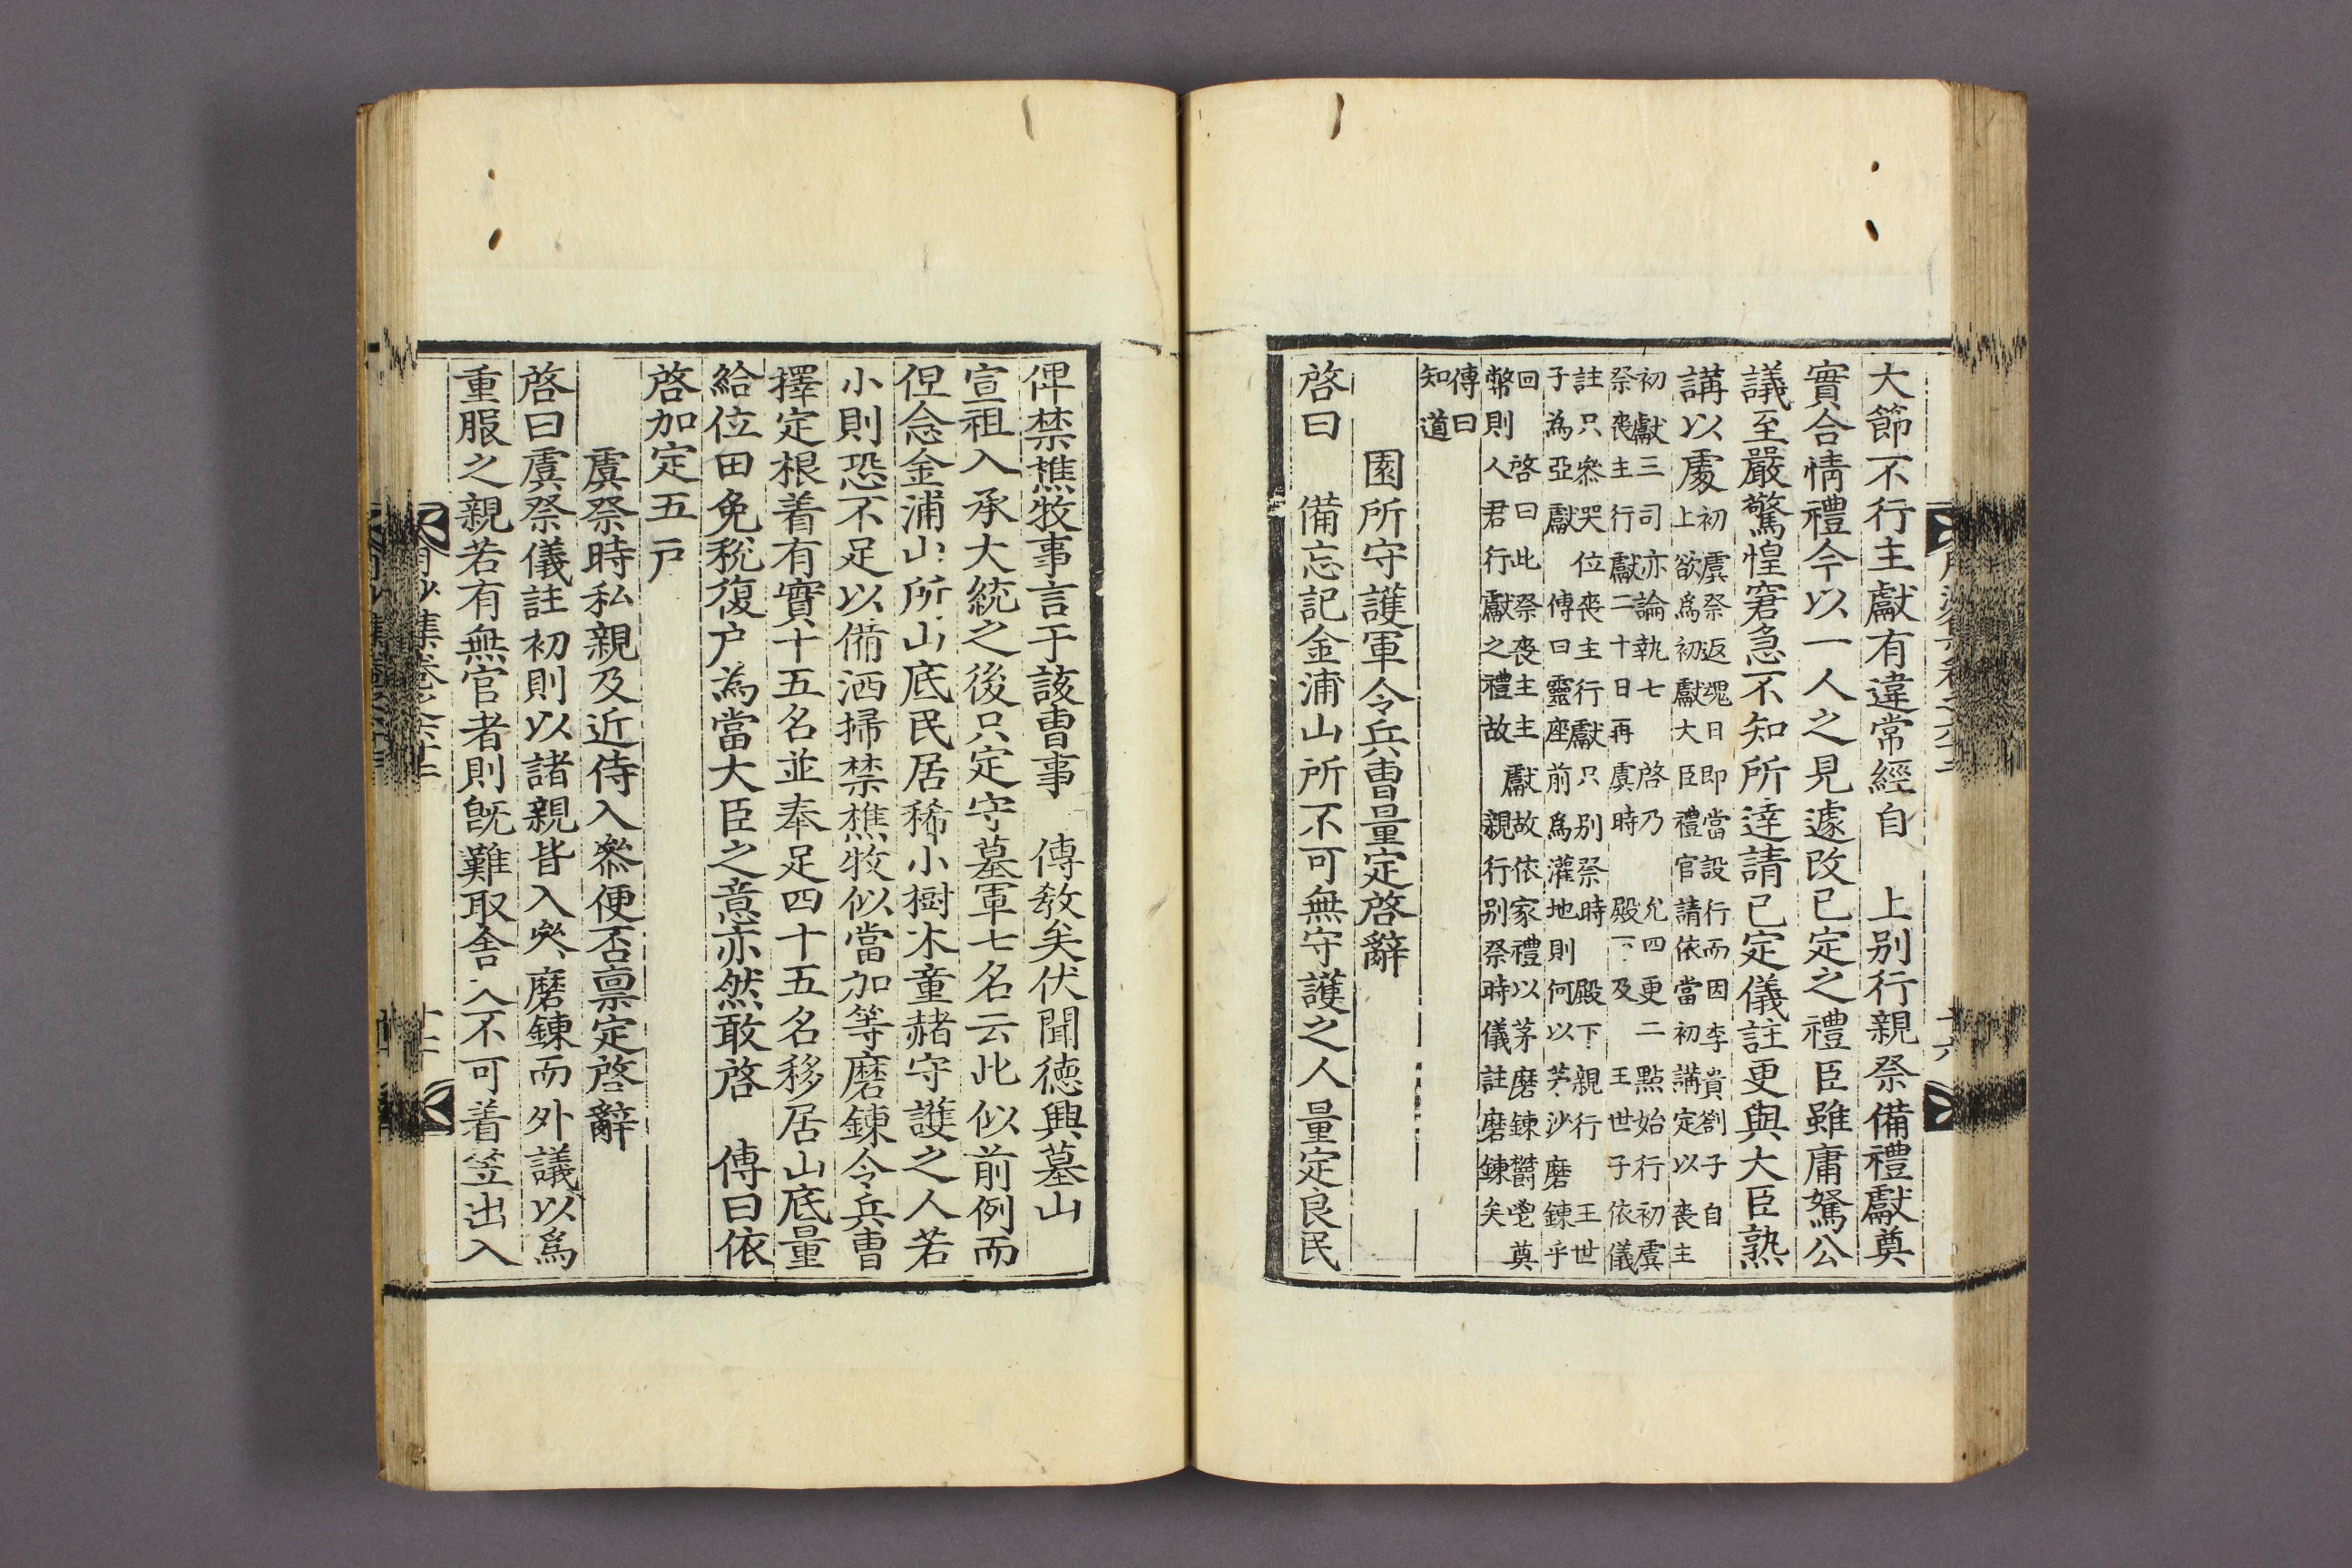 大節不行主獻有違常經自　上別行親祭備禮獻奠
實合情禮今以一人之見遽改已定之禮臣雖庸駑公
議至嚴驚惶窘急不知所達請已定儀註更與大臣熟
講以處
初虞祭返魂日即當設行而因李貴劄子自
上欲爲初獻大臣禮官請依當初講定以喪主
初獻三司亦論執七　啓乃　允四更二點始行初虞
祭喪主行獻二十日再虞時　殿下及　王世子依儀
註只參哭位喪主行獻只別祭時　殿下親行　王世
子為亞獻　傳曰靈座前爲灌地則何以茅沙磨鍊乎
回　啓曰此祭喪主主　獻故依家禮以茅磨鍊欝鬯奠
幣則人君行獻之禮故　親行別祭時儀註磨鍊矣
傳曰
知道
園所守護軍令兵曹量定啓辭
啓曰　備忘記金浦山所不可無守護之人量定良民
俾禁樵牧事言于該曹事　傳敎矣伏聞德興墓山
宣祖入承大統之後只定守墓軍七名云此似前例而
但念金浦山所山底民居稀小樹木童赭守護之人若
小則恐不足以備洒掃禁樵牧似當加等磨鍊令兵曹
擇定根着有實十五名並奉足四十五名移居山底量
給位田免稅復户為當大臣之意亦然敢啓　傳曰依
啓加定五户
虞祭時私親及近侍入參便否禀定啓辭
啓曰虞祭儀註初則以諸親皆入參磨鍊而外議以爲
重服之親若有無官者則旣難取舍又不可着笠出入